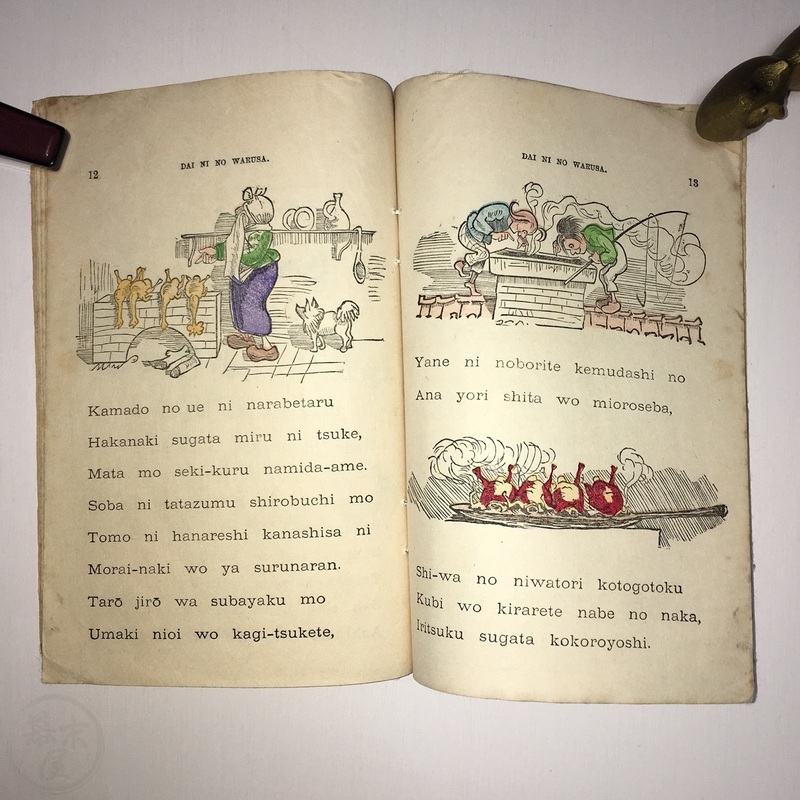 12
DAI NI NO WARUSA.
Kamado no ue ni narabetaru
Hakanaki sugata miru ni tsuke,
Mata mo seki-kuru namida-ame.
Soba ni tatazumu shirobuchi mo
Tomo ni hanareshi kanashisa ni
Morai-naki wo ya surunaran.
Tarō jirō wa subayaku mo
Umaki nioi wo kagi-tsukete,
DAI NI NO WARUSA.
13
Yane ni noborite kemudashi no
Ana yori shita wo mioroseba,
Shi-wa no niwatori kotogotoku
Kubi wo kirarete nabe no naka,
Iritsuku sugata kokoroyoshi.